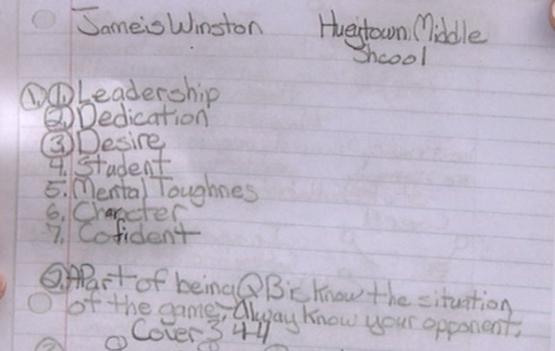 Jameis Winston Hueytown Middle
Shcool
① ① Leadership
② Dedication
③ Desire
4. Student
5. Mental Toughnes
6. Charcter
7. Cofident
② A Part of being QB is know the situation
of the game, Alway know your opponent.
Cover 3 4 4